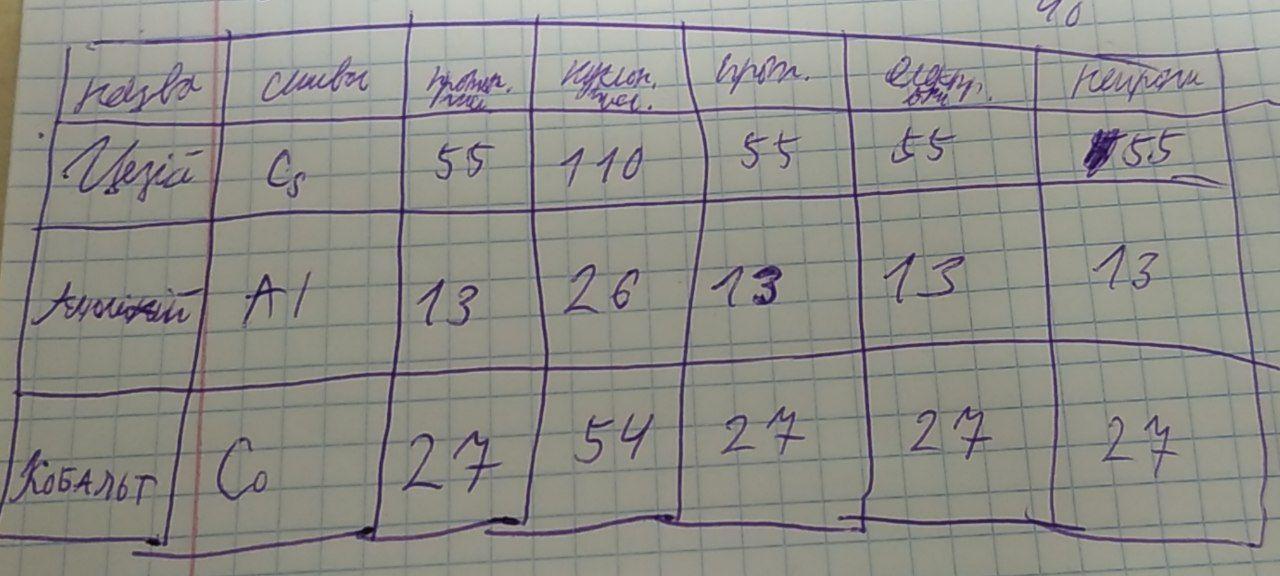 40
назва символ протон. чис. нуклон. чис. прот. електрони нейрони
Цезій Cs 55 110 55 55 55
Алюміній Al 13 26 13 13 13
КОБАЛЬТ Co 27 54 27 27 27